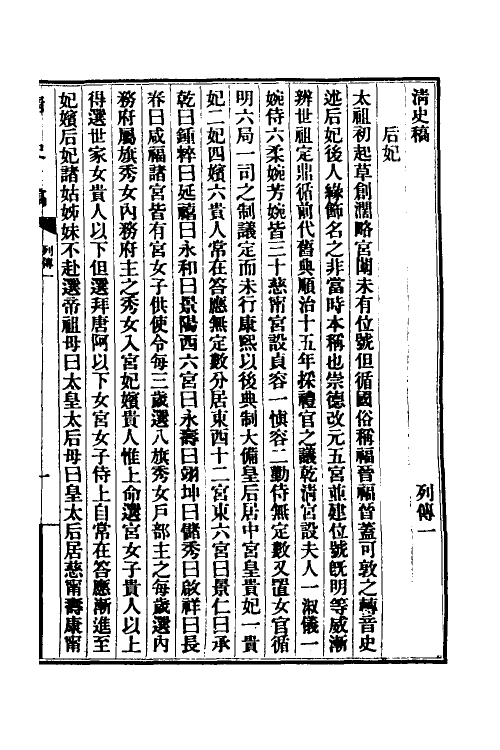 清史稿 列傳一
后妃
太祖初起草創濶略宮闈未有位號但循國俗稱福晉福晉蓋可敦之轉音史
述后妃後人緣飾名之非當時本稱也崇德改元五宮並建位號既明等威漸
辨世祖定鼎循前代舊典順治十五年採禮官之議乾清宮設夫人一淑儀一
婉侍六柔婉芳婉皆三十慈甯宮設貞容一愼容二勤侍無定數又置女官循
明六局一司之制議定而未行康熙以後典制大備皇后居中宮皇貴妃一貴
妃二妃四嬪六貴人常在答應無定數分居東西十二宮東六宮曰景仁曰承
乾曰鍾粹曰延禧曰永和曰景陽西六宮曰永壽曰翊坤曰儲秀曰啟祥曰長
春曰咸福諸宮皆有宮女子供使令每三歲選八旗秀女戶部主之每歲選內
務府屬旗秀女內務府主之秀女入宮妃嬪貴人惟上命選宮女子貴人以上
得選世家女貴人以下但選拜唐阿以下女宮女子侍上自常在答應漸進至
妃嬪后妃諸姑姊妹不赴選帝祖母曰太皇太后母曰皇太后居慈甯壽康甯
列傳一